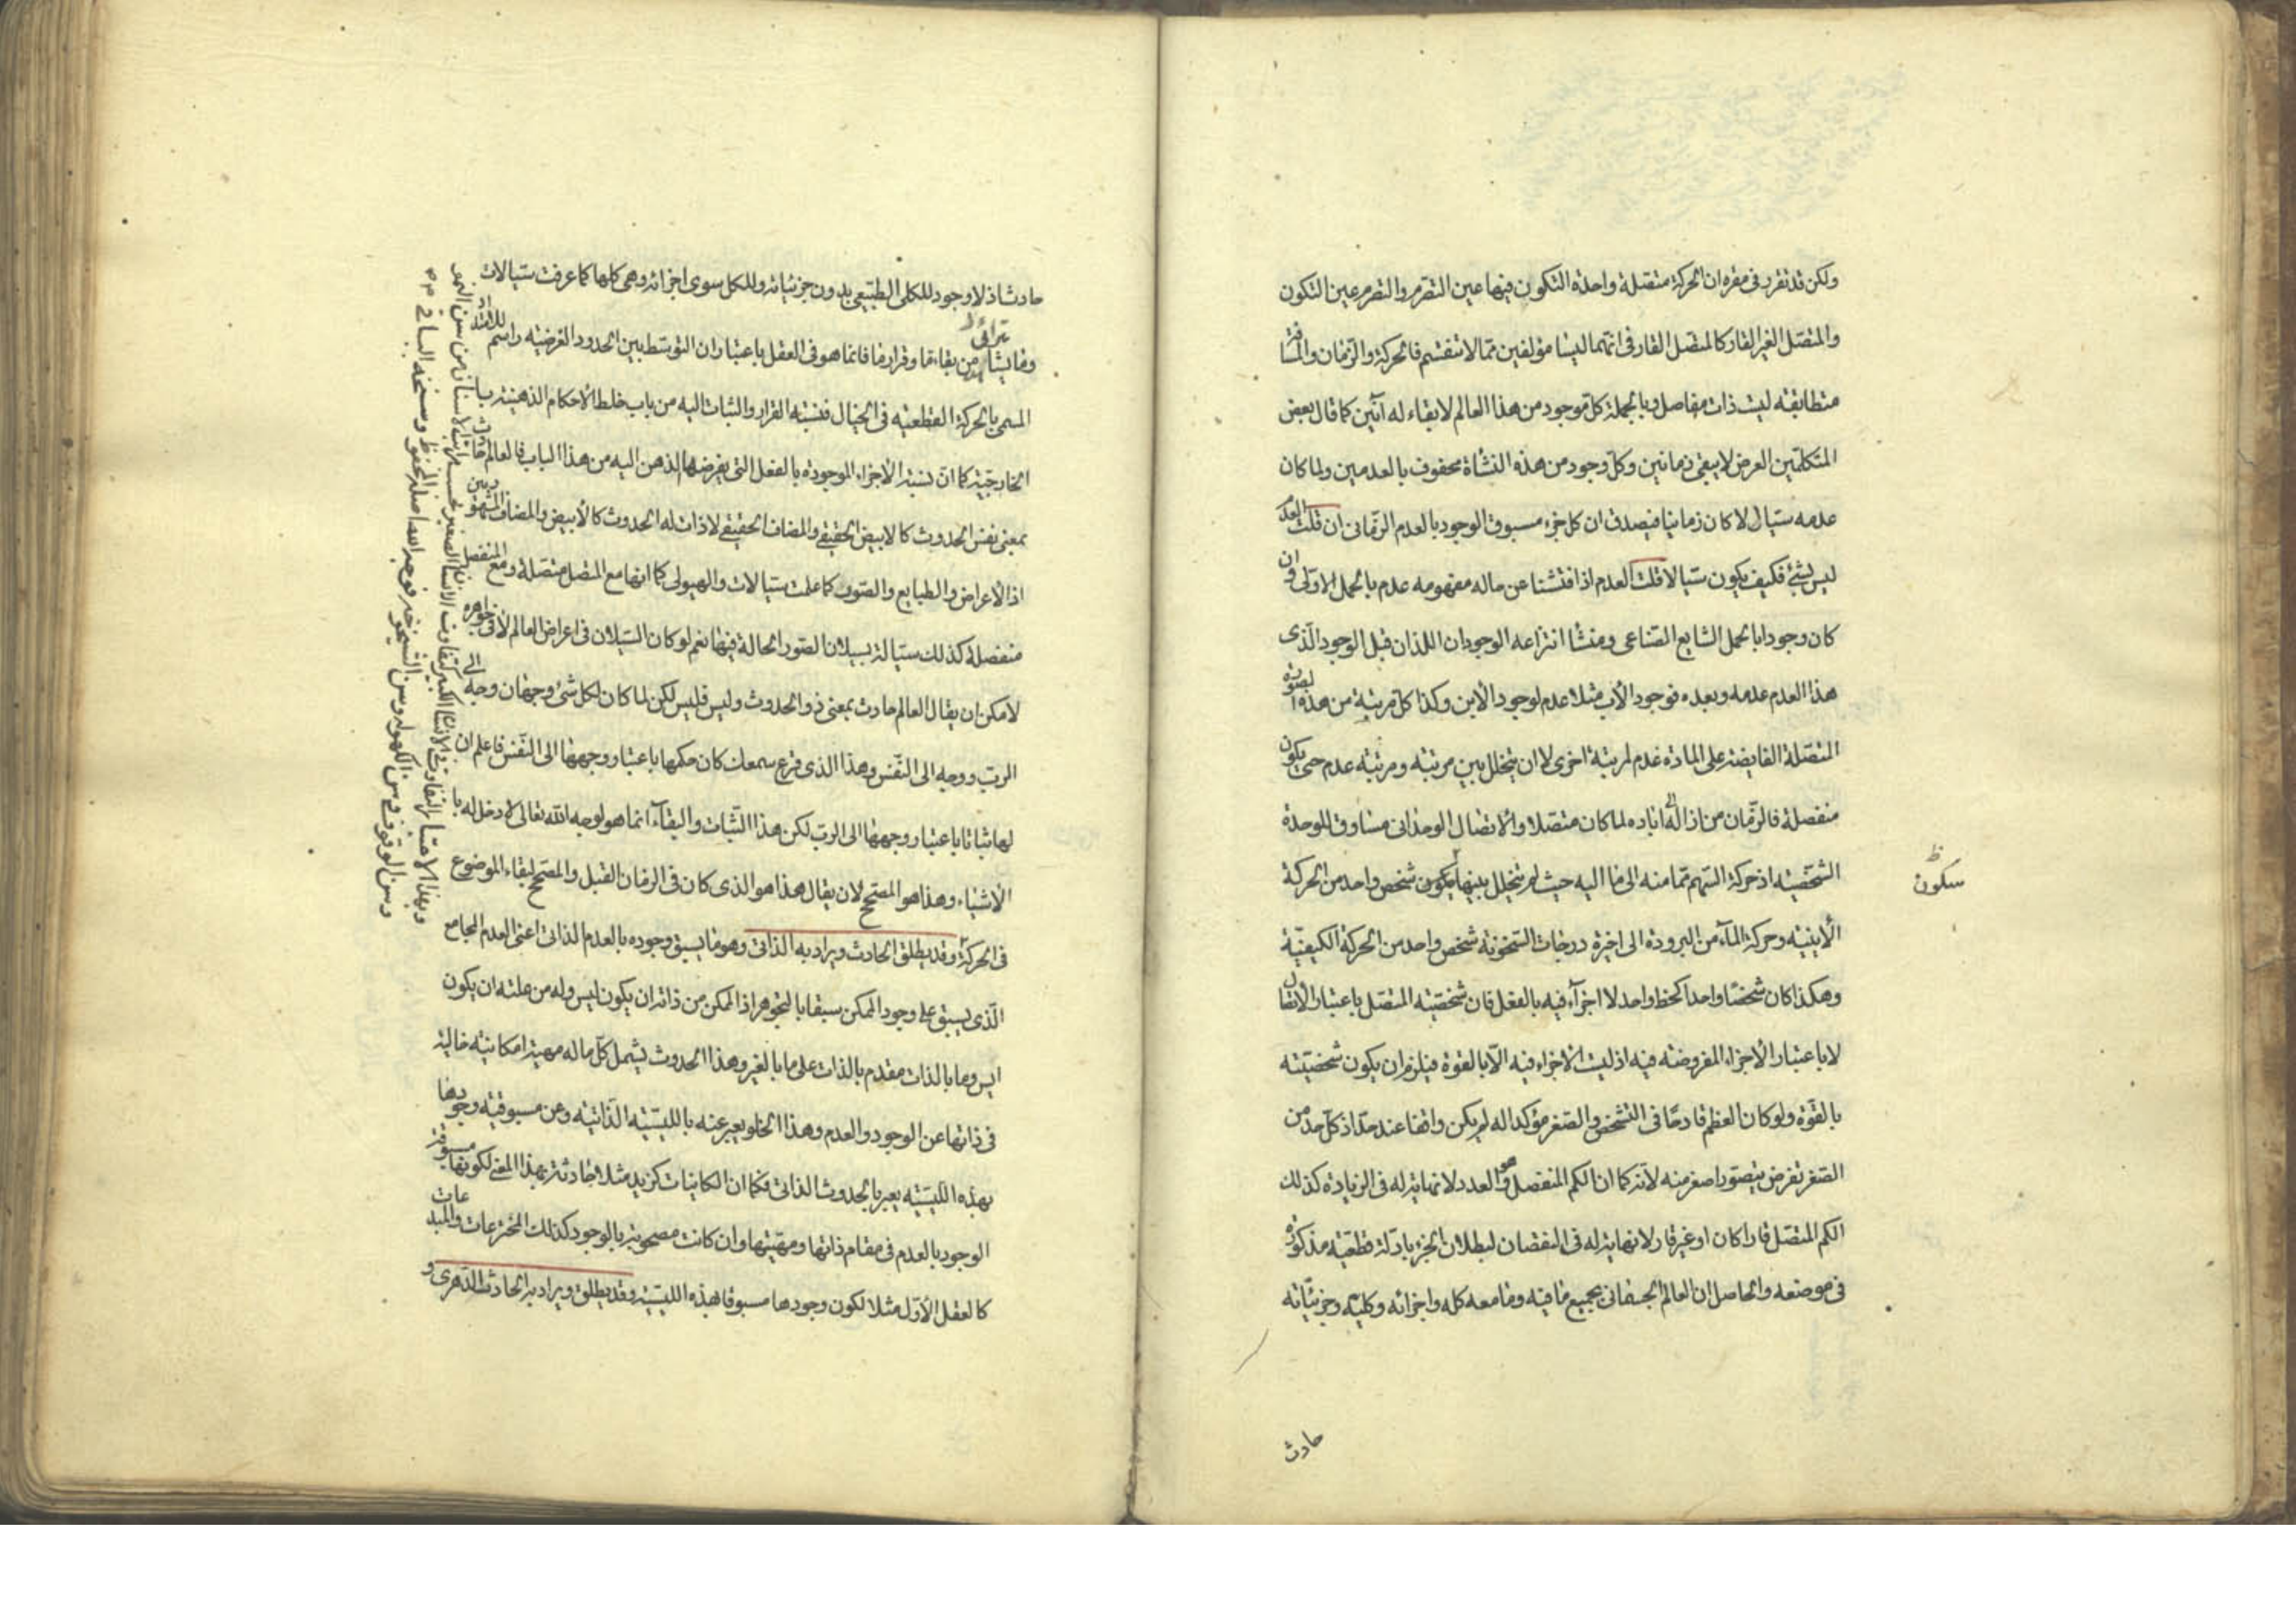 ولكن قد تقرر فى مقره ان الحركة متصلة واحدة التكون فيها عين التصرم والتصرم عين التكون
والمتصل الغير القار كالمتصل القار فى انهما ليسا مؤلفين مما لا ينقسم فالحركة والزمان والمسافة
متطابقه ليست ذات مفاصل وبالجملة كل موجود من هذا العالم لا بقاء له آنين كما قال بعض
المتكلمين العرض لا يبقى زمانين وكل وجود من هذه النشأة محفوف بالعدمين ولما كان
عدمه سيالا كان زمانيا فيصدق ان كل جزء مسبوق الوجود بالعدم الزمانى ان قلت العدم
ليس بشئ فكيف يكون سيالا قلت العدم اذا فتشنا عن حاله مفهومه عدم بالحمل الاولى وان
كان وجودا بالحمل الشايع الصناعى ومنشأ انتزاعه الوجودان اللذان قبل الوجود الذى
هذا العدم عدمه وبعده فوجود الأب مثلا عدم لوجود الأبن وكذا كل مرتبة من هذه الصورة
المتصلة الفايضة على المادة عدم لمرتبة اخرى لا ان يتخلل بين مرتبة ومرتبة عدم حتى يكون
منفصلة فالزمان من ازاله الى اباده لما كان متصلا والاتصال الوحدانى مساوق للوحدة
الشخصية اذ حركة السهم مما منه الى ما اليه حيث لم يتخلل بينها يكون شخص واحد من الحركة
سكون ظ
الأينيه وحركة المآء من البرودة الى اخيرة درجات السخونة شخص واحد من الحركة الكيفية
وهكذا كان شخصا واحدا كخط واحد لا اجزآء فيه بالفعل فان شخصيته المتصل باعتبار الاتصال
لا باعتبار الأجزاء المفروضه فيه اذ ليست الأجزاء فيه الا بالقوة فيلزم ان يكون شخصيته
بالقوة ولو كان العظم قادحا فى التشخص والصغر مؤكدا له لم يكن واقفا عند حد اذ كل حد من
الصغر تفرض يتصور اصغر منه لأنه كما ان الكم المنفصل وهو العدد لا نهاية له فى الزيادة كذلك
الكم المتصل قارا كان او غير قار لا نهاية له فى النقصان لبطلان الجزء بادلة قطعية مذكورة
فى موضعه والحاصل ان العالم الجسمانى بجميع ما فيه وما معه كله واجزائه وكليه وجزئياته
حادث
حادث اذ لا وجود للكلى الطبيعى بدون جزئياته وللكل سوى اجزائه وهى كلها كما عرفت سيالات
وما يترائى من بقاءها وقرارها فانما هو فى العقل باعتبار ان التوسط بين الحدود الفرضيه راسم للامتداد
المسمى بالحركة القطعيه فى الخيال فنسبة القرار والثبات اليه من باب خلط الأحكام الذهنيه با
الخارجية كما ان نسبة الأجزاء الموجوده بالفعل التى يفرضها الذهن اليه من هذا الباب فالعالم حادث
بمعنى نفس الحدوث كالابيض الحقيقى والمضاف الحقيقى لا ذات له الحدوث كالأبيض والمضاف المشهوريين
اذ الأعراض والطبايع والصور كما علمت سيالات والهيولى كما انها مع المتصل متصلة ومع المنفصل
منفصلة كذلك سيالة بسيلان الصور الحالة فيها نعم لو كان السيلان فى اعراض العالم لا فى جواهره
لأمكن ان يقال العالم حادث بمعنى ذو الحدوث وليس فليس لكن لما كان لكل شئ وجهان وجه الى
الرب ووجه الى النفس وهذا الذى قرع سمعك كان حكمها باعتبار وجهها الى النفس فاعلم ان
لها ثباتا باعتبار وجهها الى الرب لكن هذا الثبات والبقاء انما هو لوجه الله تعالى لا دخل له با
لأشياء وهذا هو المصحح لان يقال هذا هو الذى كان فى الزمان القبل والمصحح لبقاء الموضوع
فى الحركة وقد يطلق الحادث ويراد به الذاتى وهو ما يسبق وجوده بالعدم الذاتى اعنى العدم المجامع
الذى يسبق على وجود الممكن سبقا بالتجوهر اذ الممكن من ذاته ان يكون ليس وله من علته ان يكون
ايس وما بالذات مقدم بالذات على ما بالغير وهذا الحدوث يشمل كل ما له مهية امكانية خالية
فى ذاتها عن الوجود والعدم وهذا الخلو يعبر عنه بالليسية الذاتيه وعن مسبوقيه وجودها
بهذه الليسيه يعبر بالحدوث الذاتى فكما ان الكاينات كزيد مثلا حادثة بهذا المعنى لكونها مسبوقة
الوجود بالعدم فى مقام ذاتها ومهيتها وان كانت مصحوبة بالوجود كذلك المخترعات والمبدعات
كالعقل الأول مثلا لكون وجودها مسبوقا بهذه الليسية وقد يطلق ويراد به الحادث الدهرى و